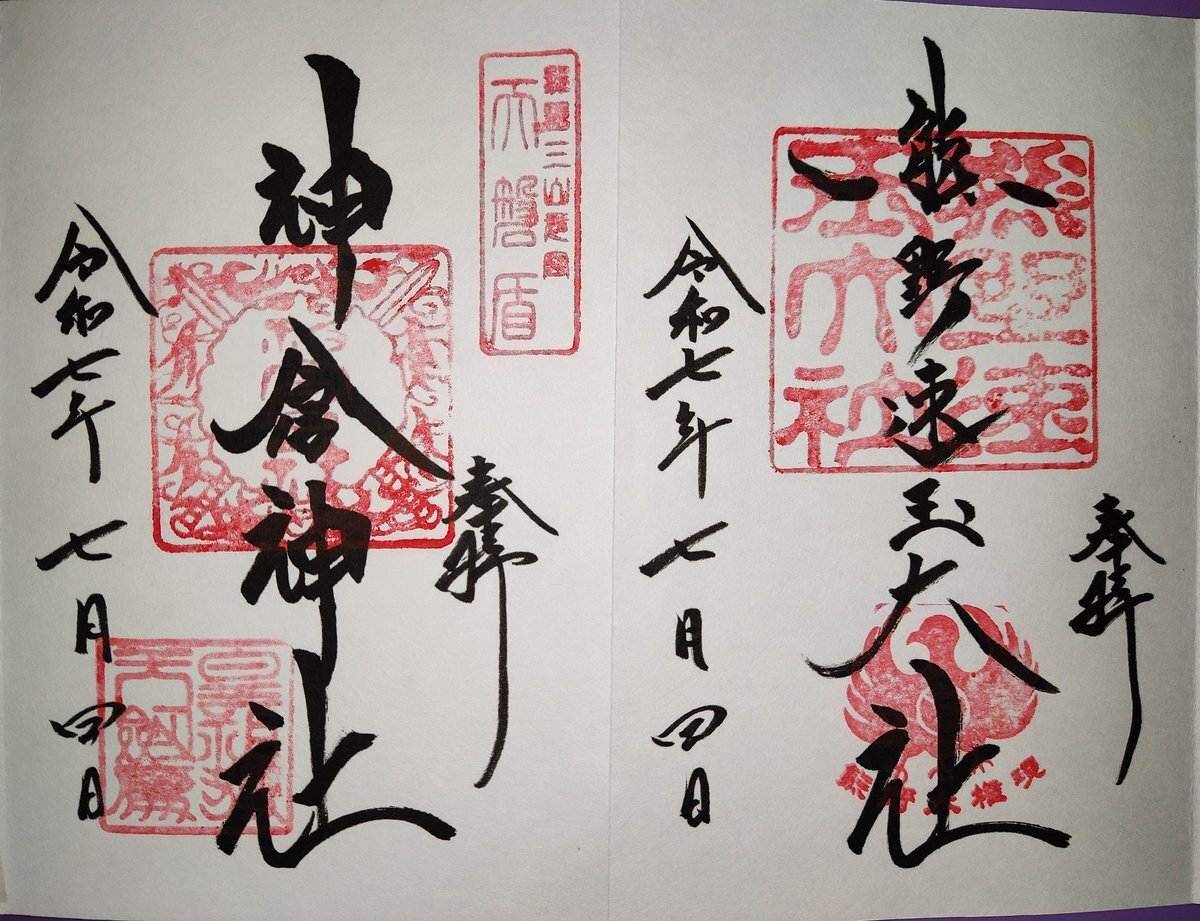 奉拝
熊野速玉大社
令和七年七月四日
熊野速玉大社
熊野大権現
奉拝
神倉神社
令和七年七月四日
天磐盾